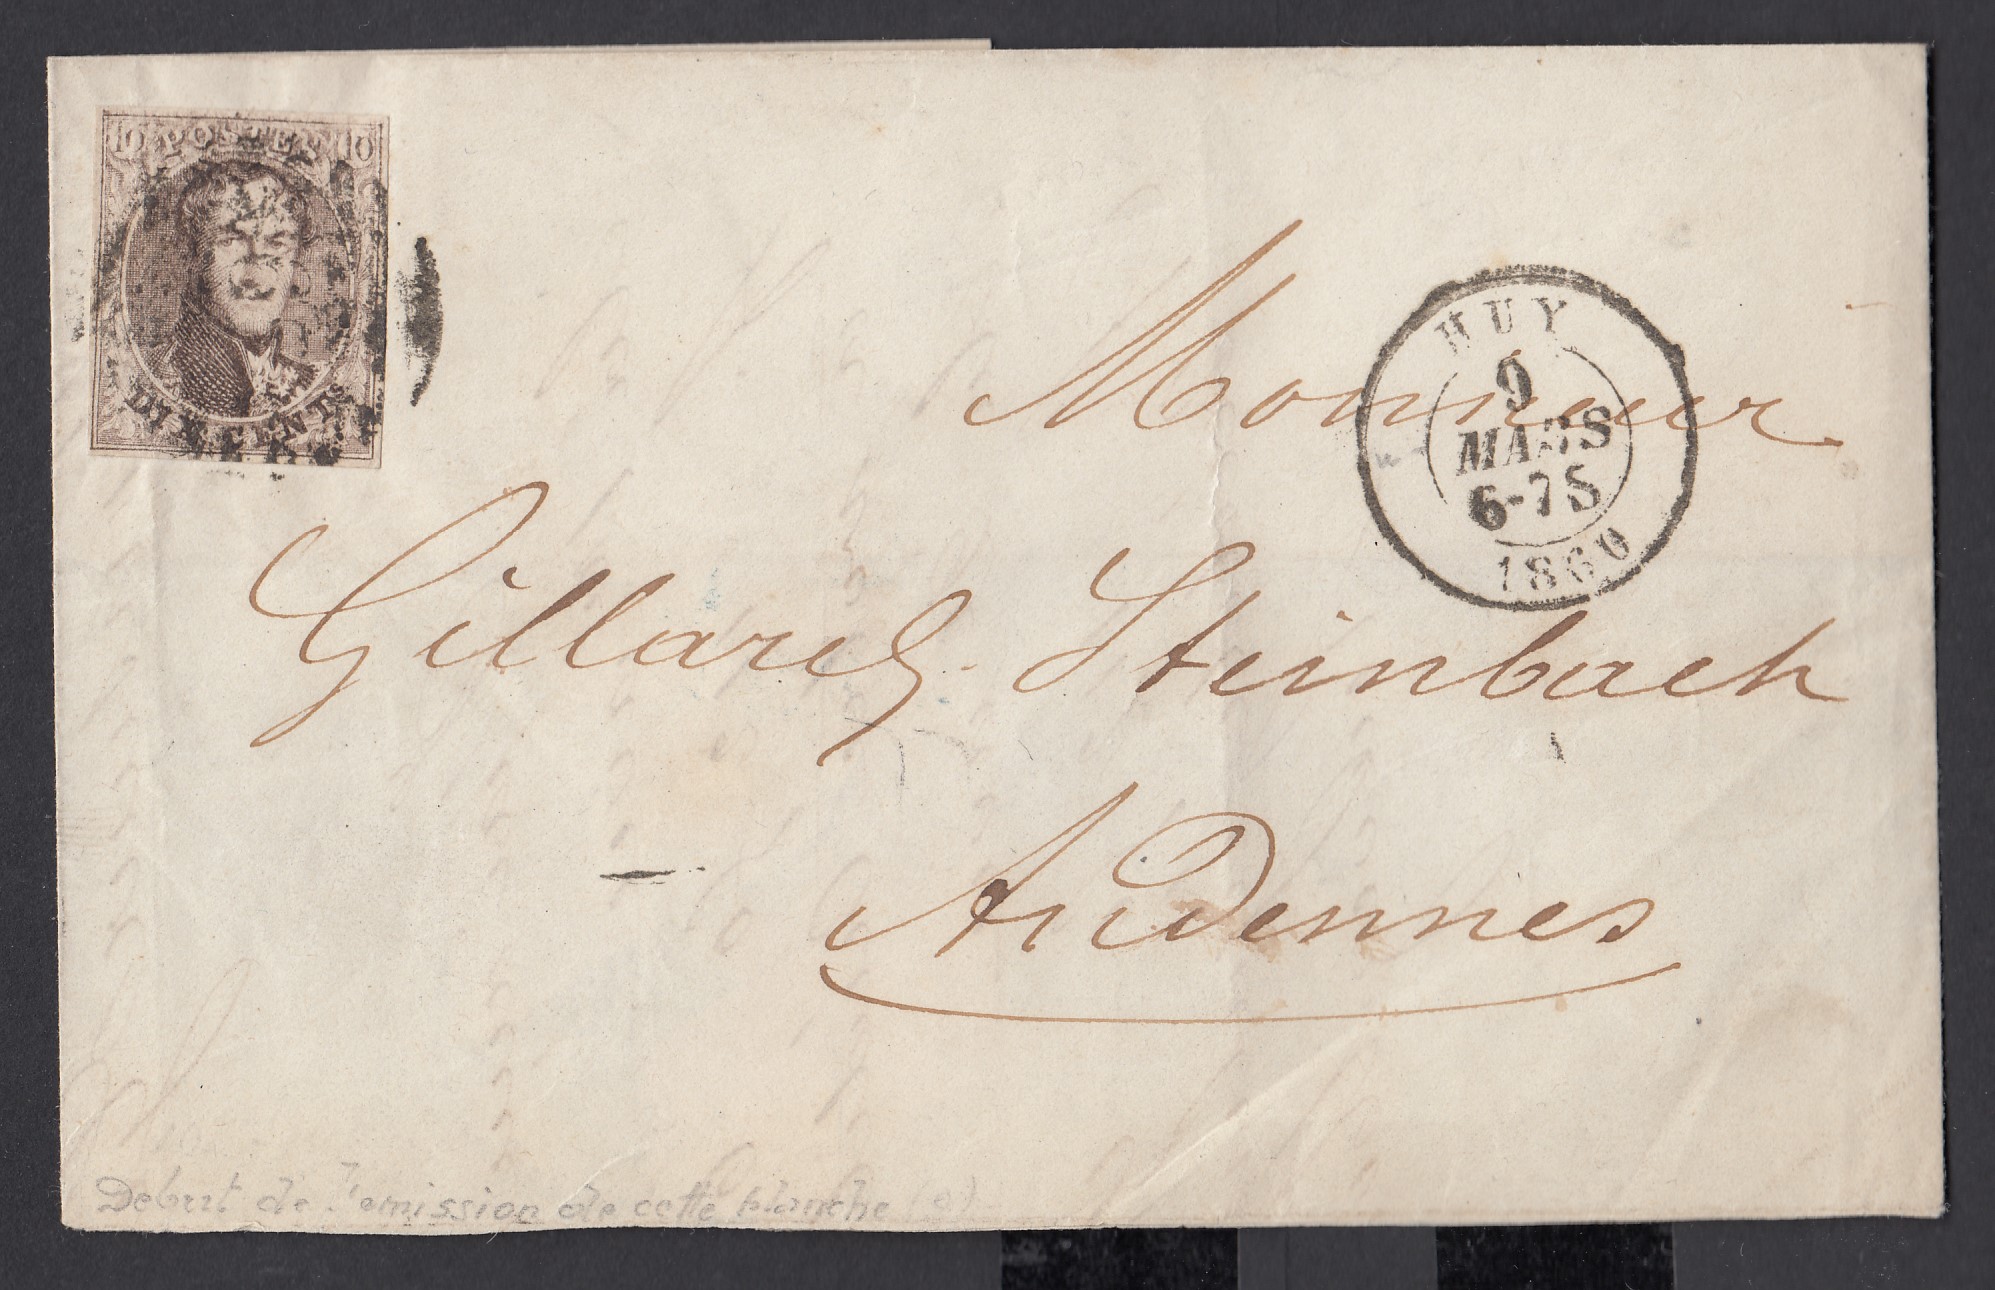 10 POSTES 10
DIX CENTS
HUY
9
MARS
6-7S
1860
Monsieur
Gillard-Steinbach
Andennes
Debut de l'emission de cette planche